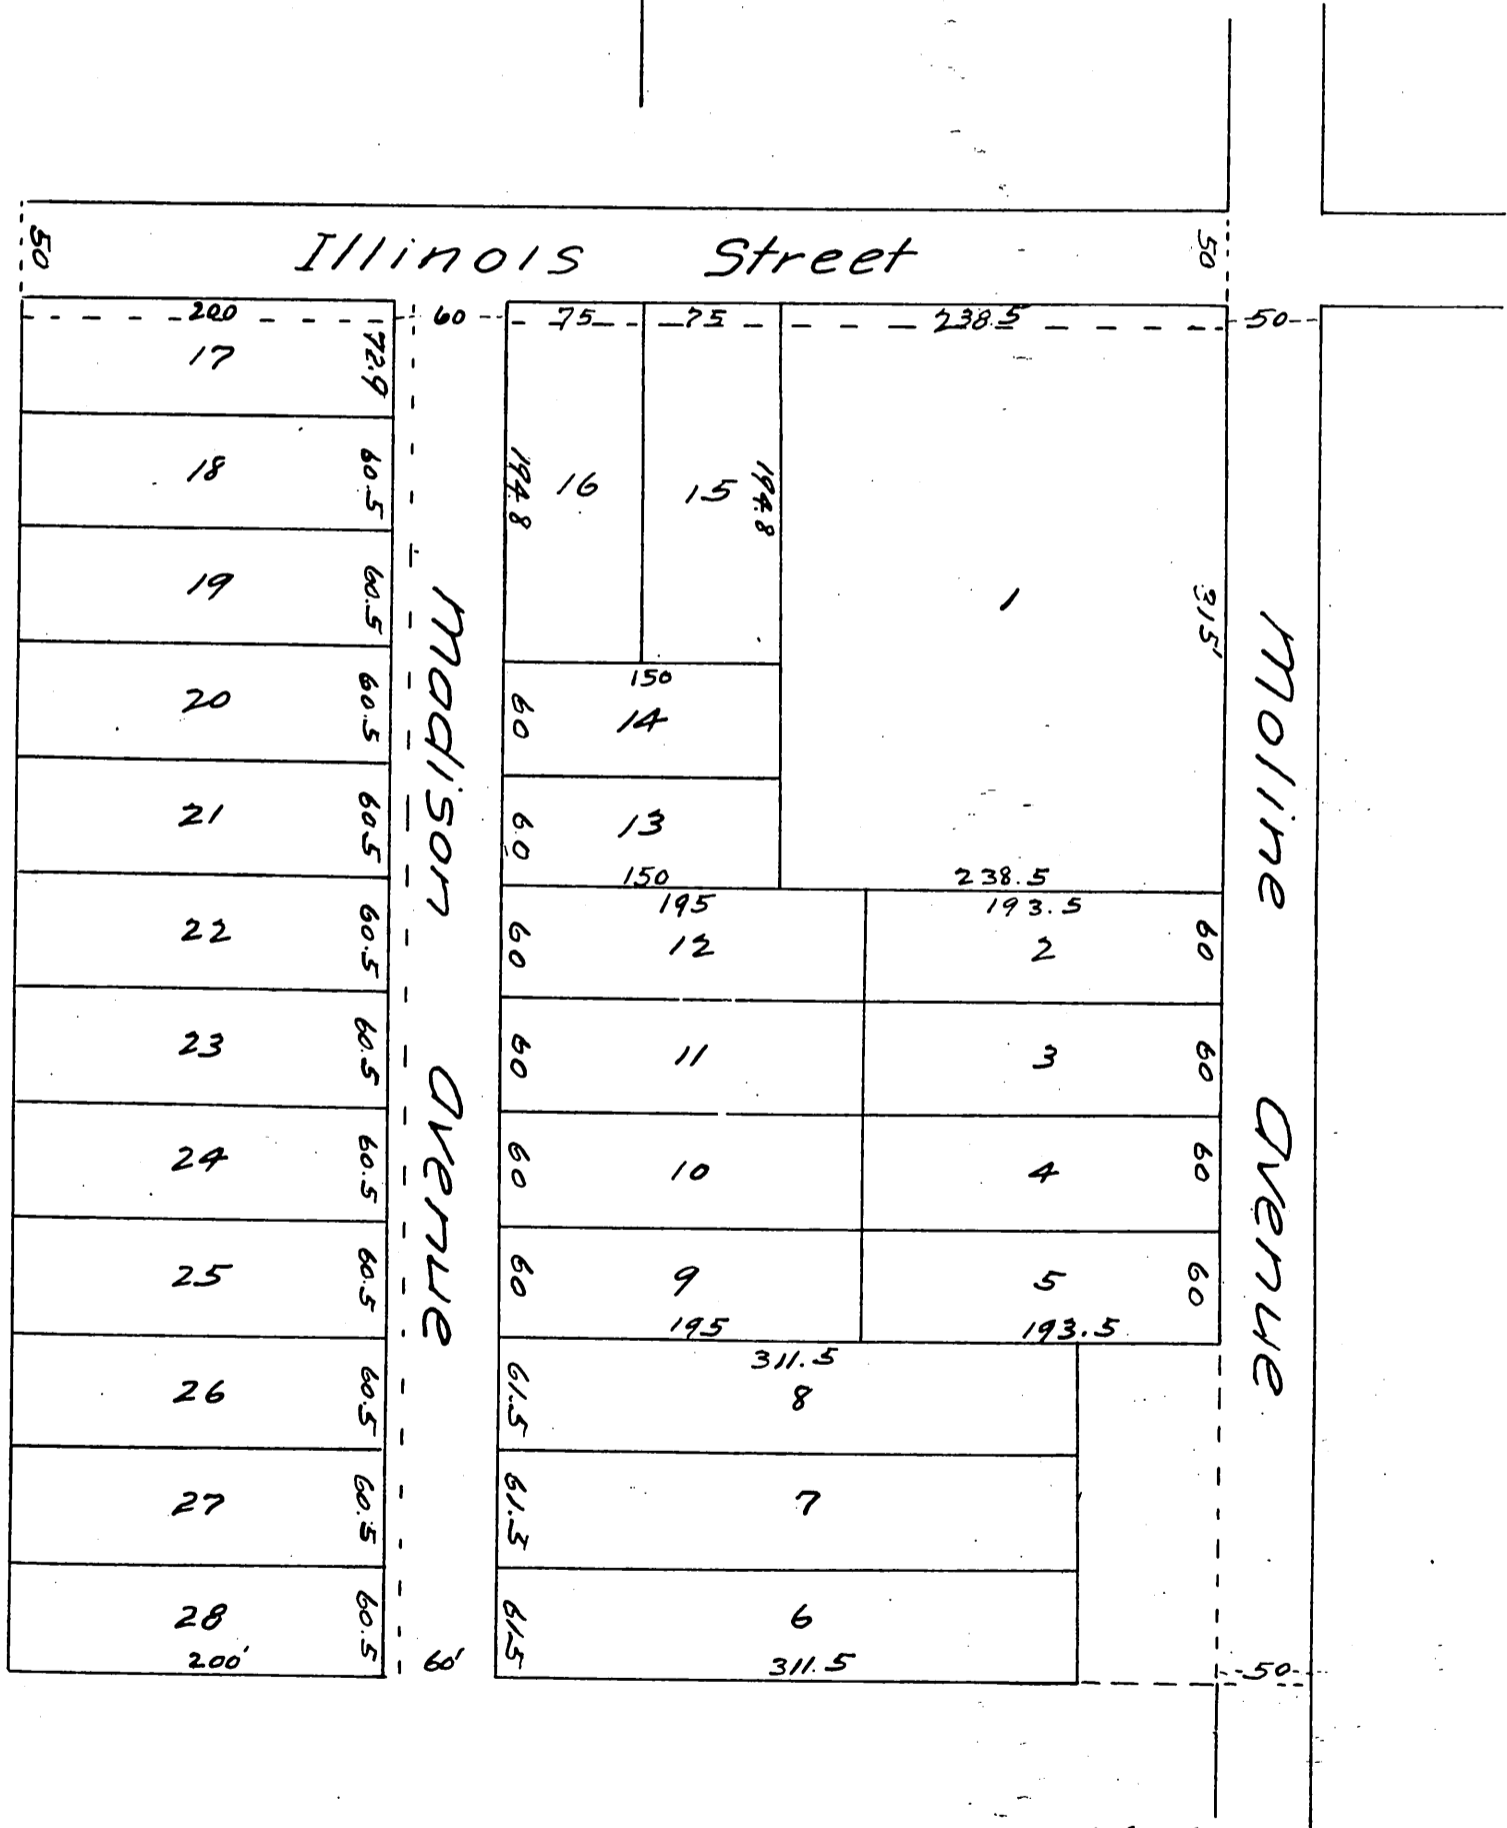 50
Illinois Street
50
200
60
75
75
238.5
50
17
72.9
18
60.5
19
60.5
20
60.5
21
60.5
22
60.5
23
60.5
24
60.5
25
60.5
26
60.5
27
60.5
28
60.5
200'
Madison Avenue
60'
194.8
16
15
194.8
1
315'
150
60
14
60
13
150
238.5
195
193.5
60
12
2
60
60
11
3
60
60
10
4
60
60
9
5
60
195
193.5
311.5
61.5
8
61.5
7
61.5
6
311.5
Moline Avenue
50